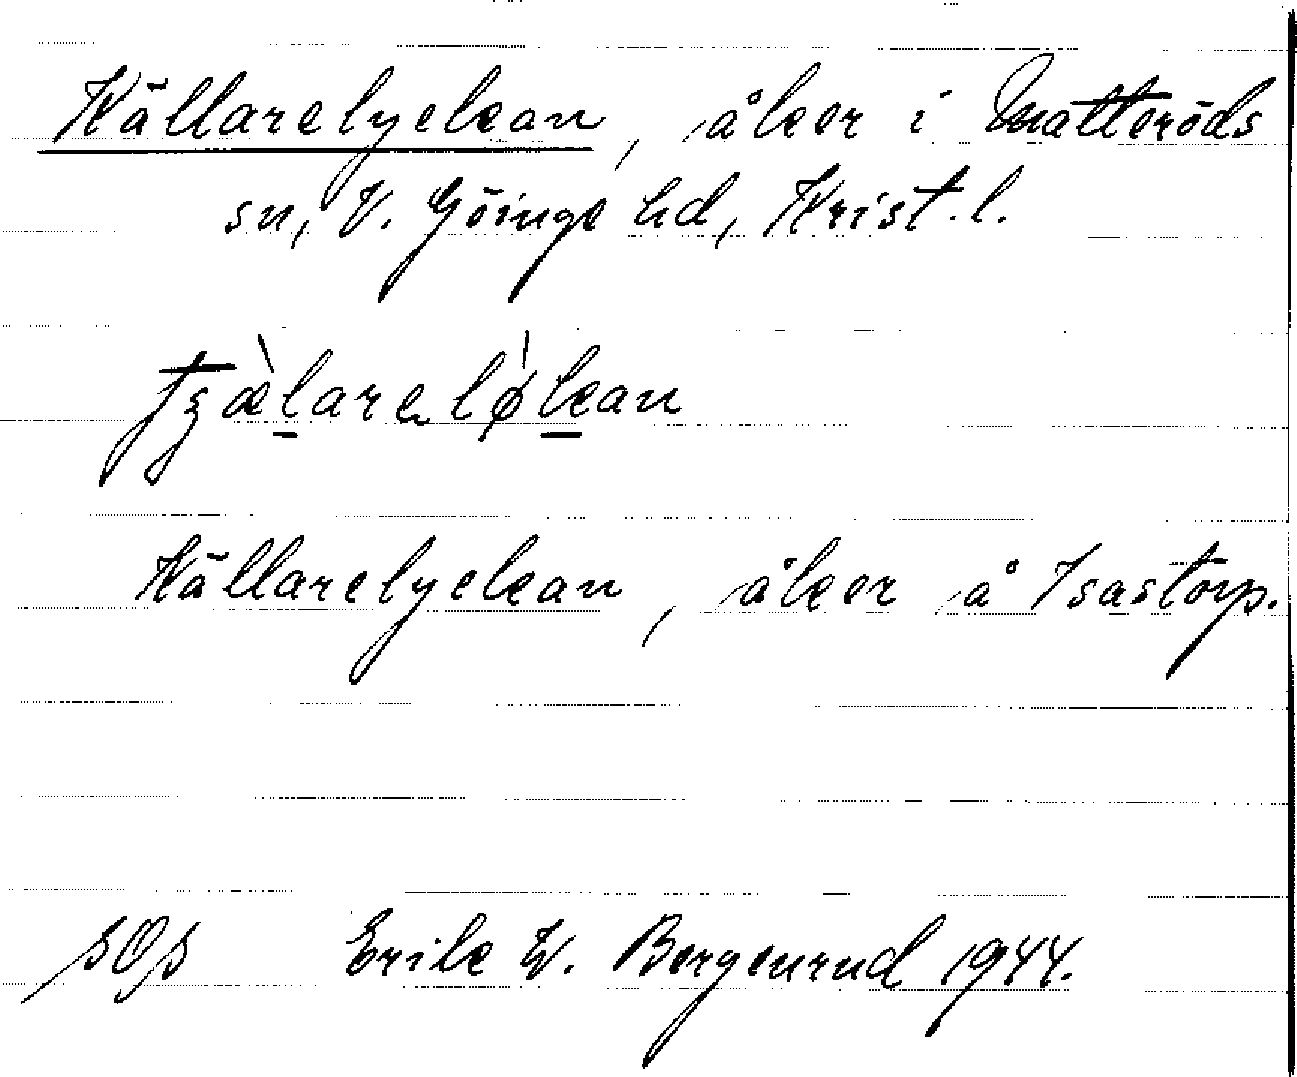 Källarelyckan, åker i Matteröds
sn, V. Göinge hd, Krist. l.
tʒæ̀larelø̍kan
Källarelyckan, åker å Isastorp.
Erik W. Bergenrud 1944.